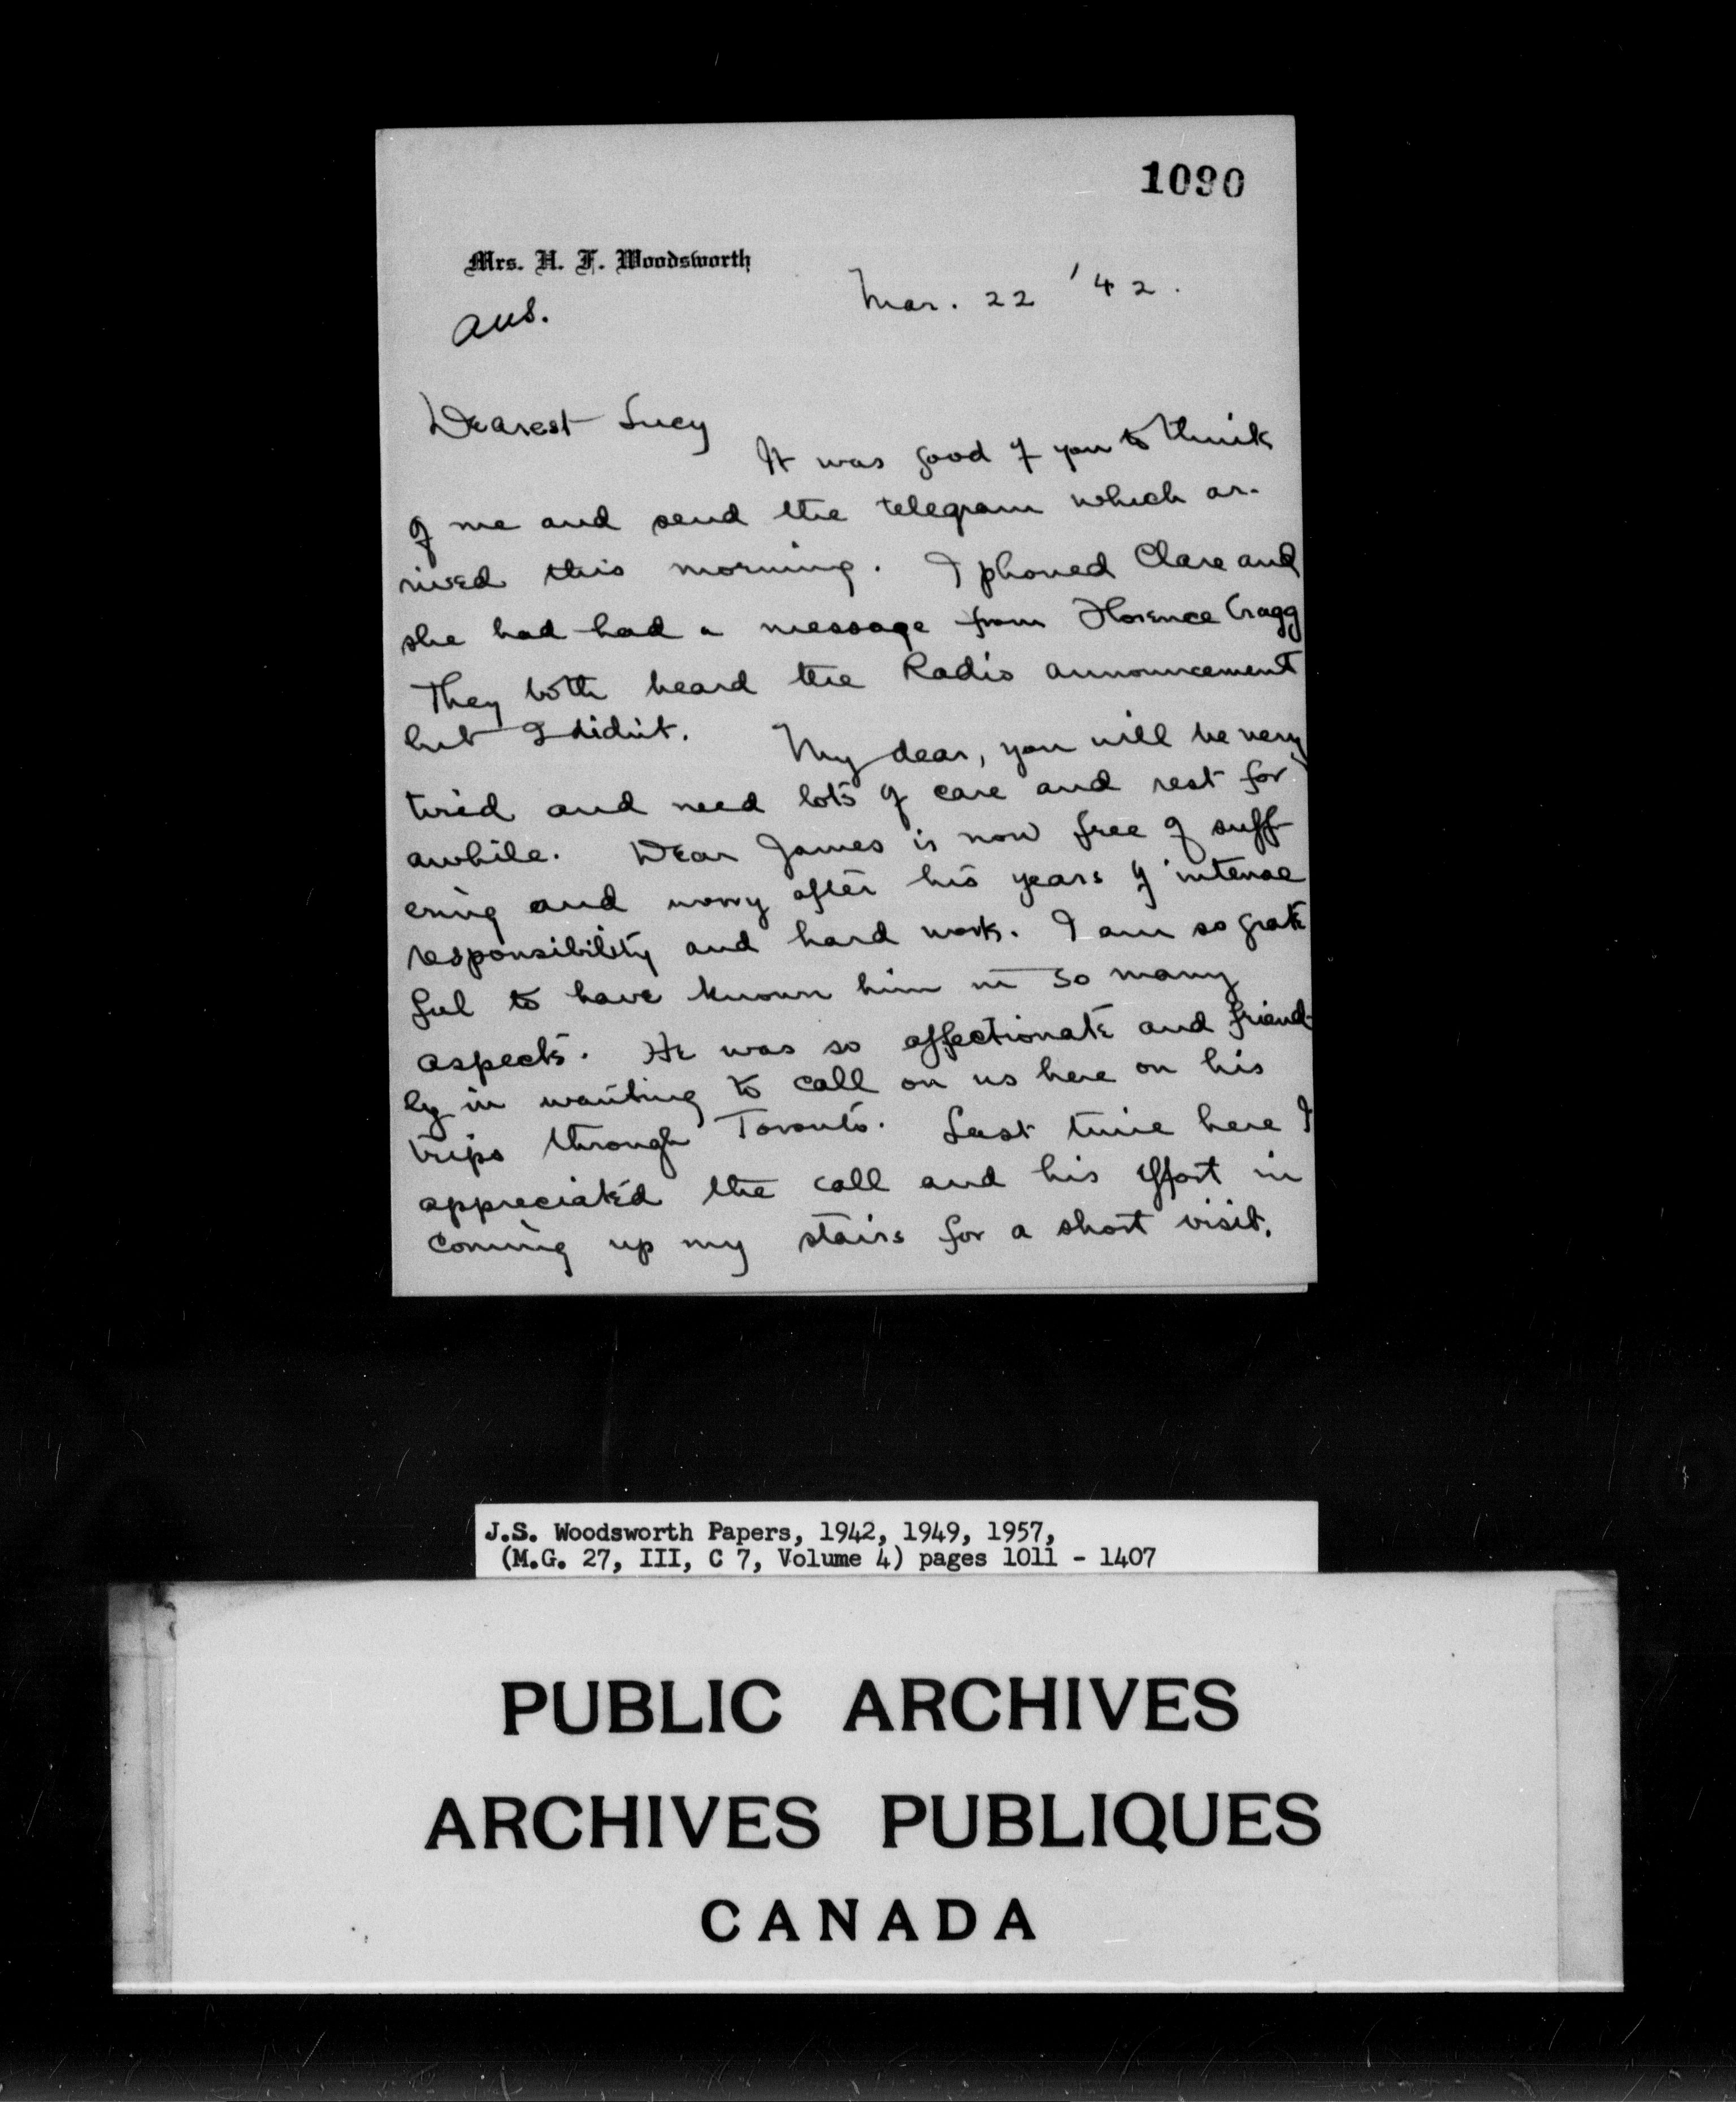 1090
Mrs. H. F. Woodsworth
Mar. 22 '42.
Ans.
Dearest Lucy
It was good of you to think
of me and send the telegram which ar-
rived this morning. I phoned Clare and
she had had a message from Florence Cragg
They both heard the Radio announcement
but I didn't. My dear, you will be very
tired and need lots of care and rest for
awhile. Dear James is now free of suff-
ering and worry after his years of intense
responsibility and hard work. I am so grate
ful to have known him in so many
aspects. He was so affectionate and friend-
ly in wanting to call on us here on his
trips through Toronto. Last time here I
appreciated the call and his effort in
coming up my stairs for a short visit.
J.S. Woodsworth Papers, 1942, 1949, 1957,
(M.G. 27, III, C 7, Volume 4) pages 1011 - 1407
PUBLIC ARCHIVES
ARCHIVES PUBLIQUES
CANADA